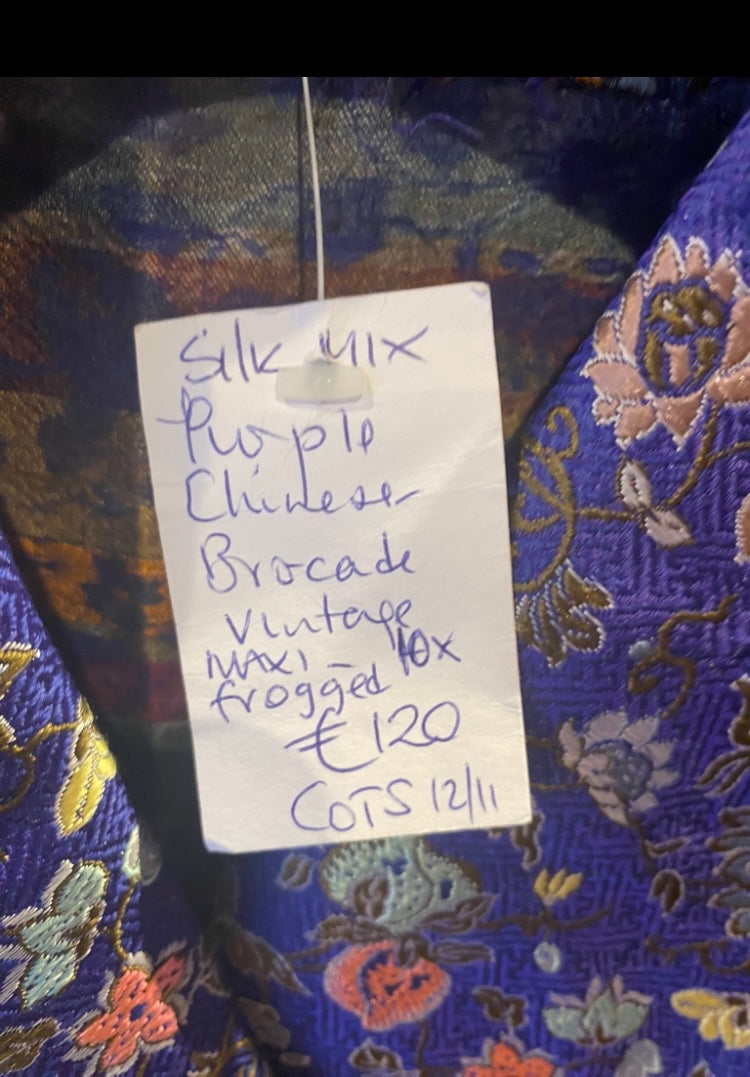 Silk MIX
Purple
Chinese
Brocade
Vintage
MAXI - 10x
frogged
€120
COTS 12/11